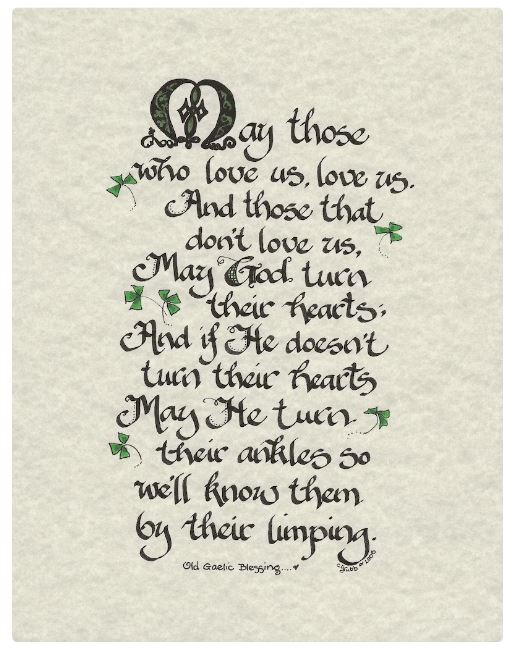 May those
who love us, love us.
And those that
don't love us,
May God turn
their hearts;
And if He doesn't
turn their hearts
May He turn
their ankles so
we'll know them
by their limping.
Old Gaelic Blessing....